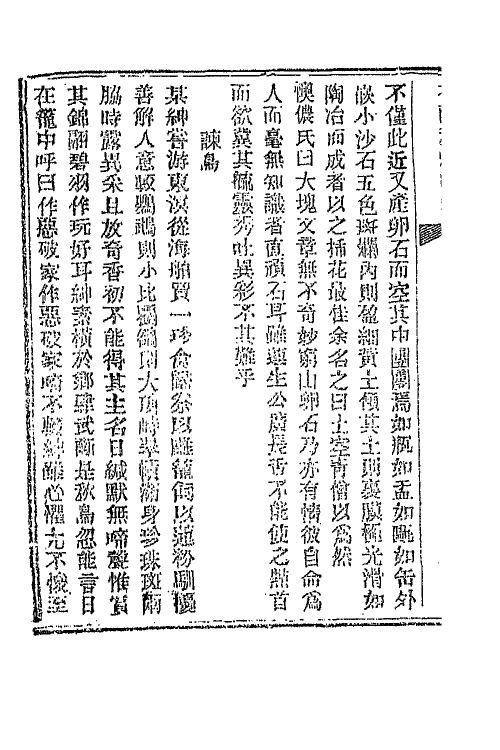 不僅此近又產卵石而空其中團團焉如瓶如盂如甌如缶外
嵌小沙石五色斑斕內則盈細黃土傾其土則裏膜極光滑如
陶冶而成者以之插花最佳余名之曰土空青僧以為然
懊儂氏曰大塊文章無不奇妙窮山卵石乃亦有情彼自命為
人而毫無知識者直頑石耳雖遇生公廣長舌不能使之點首
而欲冀其毓靈秀吐異彩不其難乎
諫鳥
某紳嘗游東溟從海舶買一珍禽歸祭以雕籠飼以蓮粉馴優
善解人意較鸚鵡則小比鸜鵒則大頂峙翠幘瀚身珍珠斑兩
脇時露異采且放奇香初不能得其主名日緘默無啼聲惟賞
其錦翮碧羽作玩好耳紳素橫於鄉肆武斷是秋鳥忽能言日
在籠中呼曰作惡破家作惡破家啼不輟紳雖心懼尤不悛至